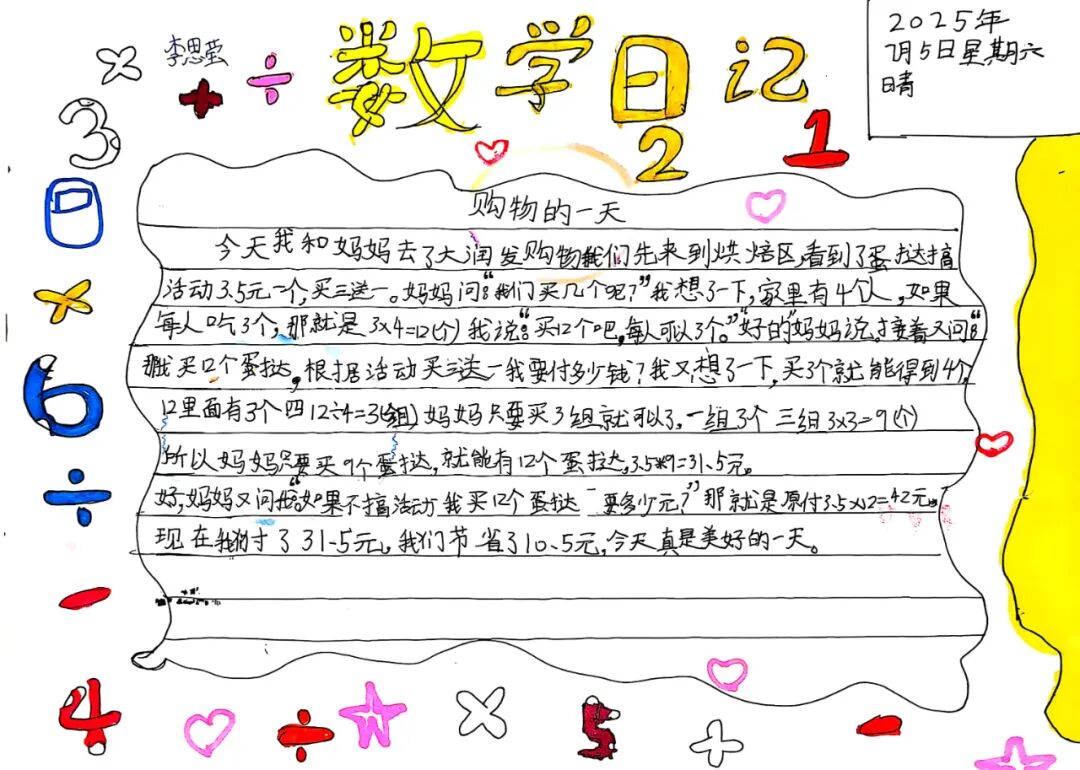 李思莹
数学日记
2025年
7月5日星期六
晴
3
2
1
购物的一天
今天我和妈妈去了大润发购物我们先来到烘焙区,看到了蛋挞搞
活动3.5元一个,买三送一。妈妈问:“我们买几个呢?”我想了一下,家里有4个人,如果
每人吃3个,那就是3×4=12(个)我说:“买12个吧,每人可以3个。”“好的”妈妈说。接着又问:“
那我买12个蛋挞,根据活动买三送一我要付多少钱?我又想了一下,买3个就能得到4个,
12里面有3个四12÷4=3(组)妈妈只要买3组就可以了.一组3个 三组3×3=9(个)
所以妈妈只要买9个蛋挞,就能有12个蛋挞,3.5*9=31.5元。
好,妈妈又问:“如果不搞活动我买12个蛋挞一要多少元?”那就是原付3.5×12=42元。
现在我们付了31.5元,我们节省了10.5元,今天真是美好的一天。
6
4
5